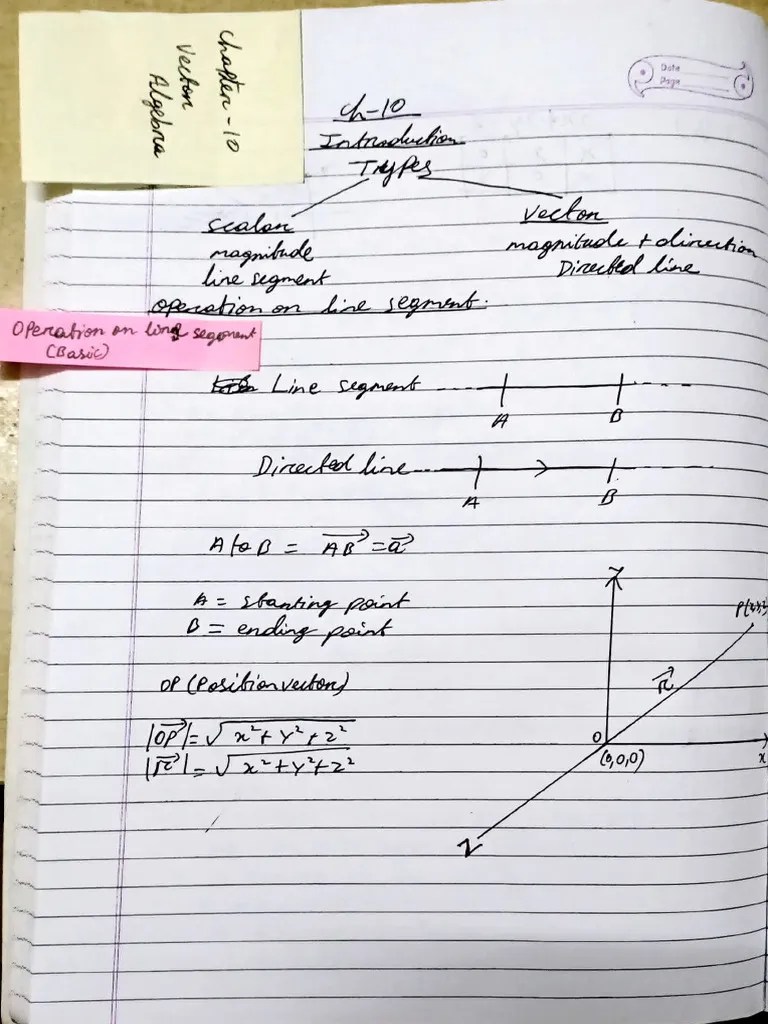 Chapter-10
Vector
Algebra
Date
Page
Ch-10
Introduction
Types
scalar
magnitude
line segment
vector
magnitude + direction
Directed line
operation on line segment.
Operation on line segment
(Basic)
Line segment
A B
Directed line
A B
A to B = \overrightarrow{AB} = \vec{a}
A = starting point
B = ending point
OP (Position vector)
|\overrightarrow{OP}| = √x²+y²+z²
|\vec{r}| = √x²+y²+z²
\vec{r}
O
(0,0,0)
x
Z